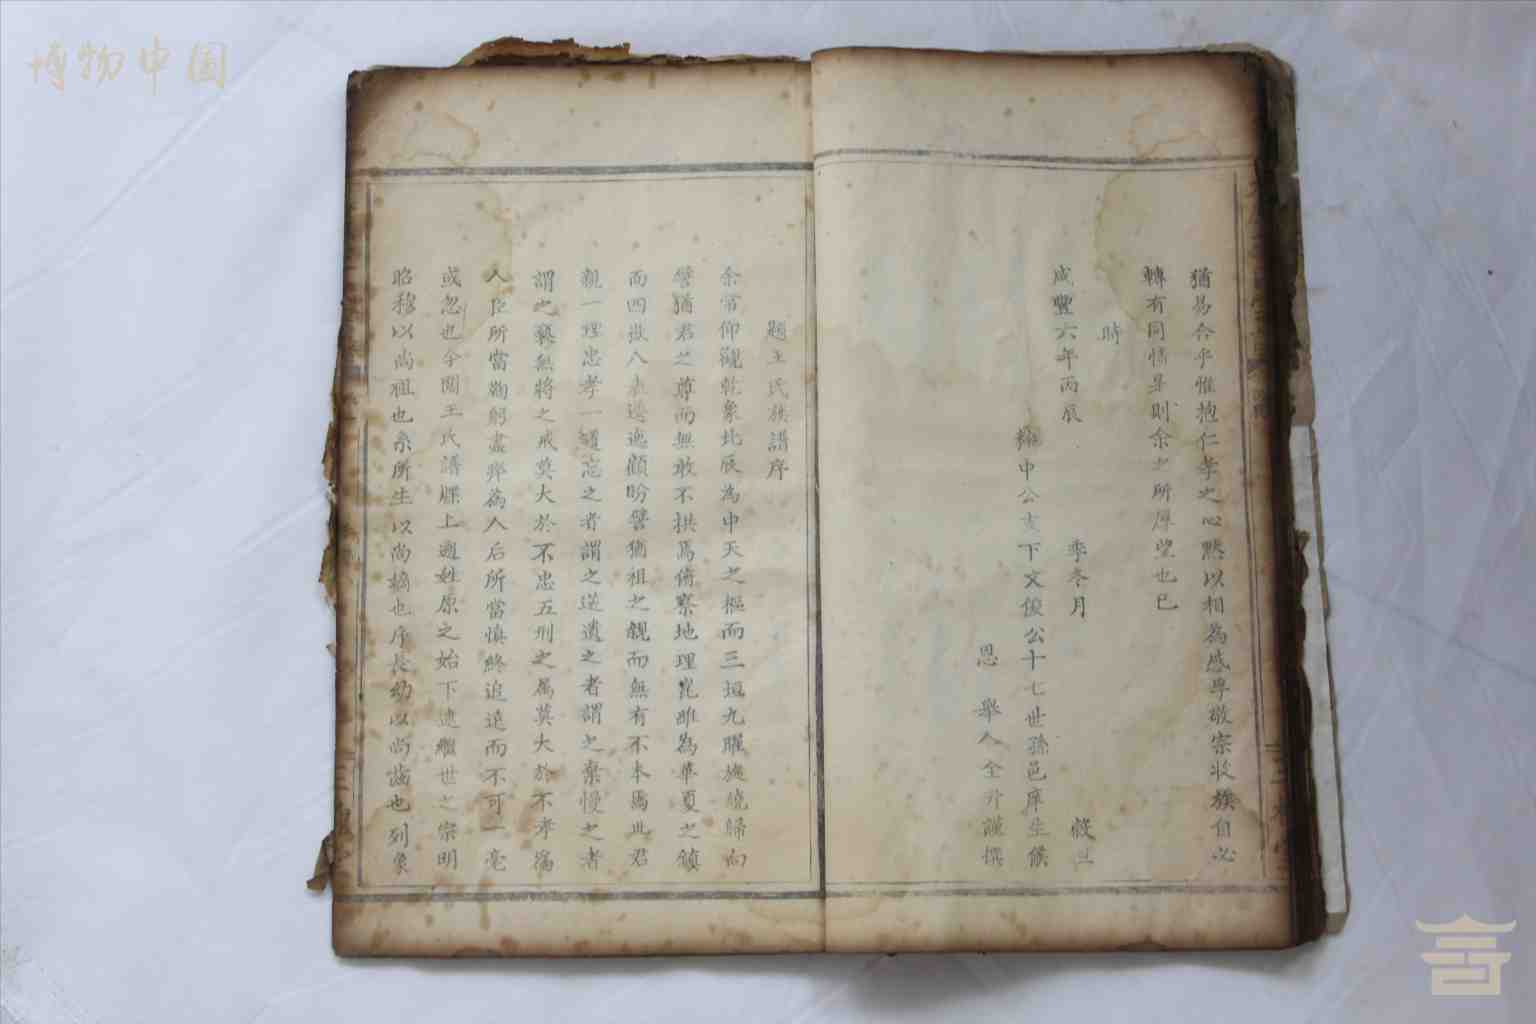 博物中国
猶易合乎惟抱仁孝之心默以相為感尊敬宗收族自必
轉有同情是則余之所厚望也已
時
咸豐六年丙辰 季冬月 穀旦
輝中公支下文俊公十七世孫邑庠生候
恩 舉人全升謹撰
題王氏族譜序
余常仰觀乾象北辰為中天之樞而三垣九曜旋繞歸向
譬猶君之尊而無敢不拱焉俯察地理崑雎為華夏之鎮
而四嶽八表遠迤顧盼譬猶祖之親而無有不本焉此君
親一理忠孝一道忘之者謂之逆遺之者謂之棄慢之者
謂之褻無將之戒莫大於不忠五刑之属莫大於不孝為
人臣所當鞠躬盡瘁為人后所當慎終追遠而不可一毫
或忽也今閱王氏譜牒上遡姓原之始下逮繼世之宗明
昭穆以尚祖也系所生以尚嫡也序長幼以尚齒也列象